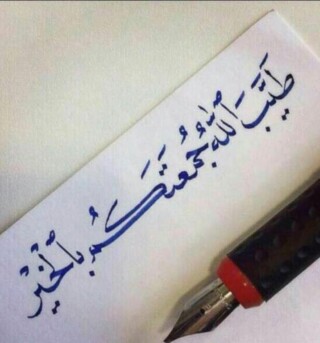 طَيَّبَ اللهُ جُمُعَتَكُم بِالخَيْرِ